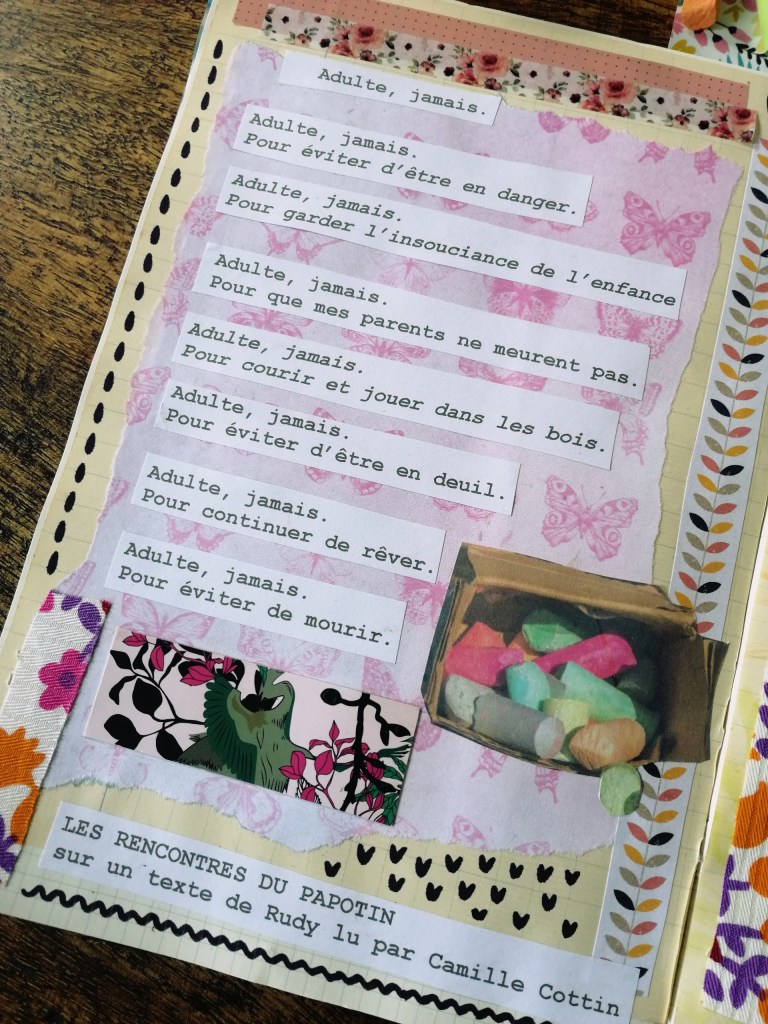 Adulte, jamais.
Adulte, jamais.
Pour éviter d'être en danger.
Adulte, jamais.
Pour garder l'insouciance de l'enfance
Adulte, jamais.
Pour que mes parents ne meurent pas.
Adulte, jamais.
Pour courir et jouer dans les bois.
Adulte, jamais.
Pour éviter d'être en deuil.
Adulte, jamais.
Pour continuer de rêver.
Adulte, jamais.
Pour éviter de mourir.
LES RENCONTRES DU PAPOTIN
sur un texte de Rudy lu par Camille Cottin